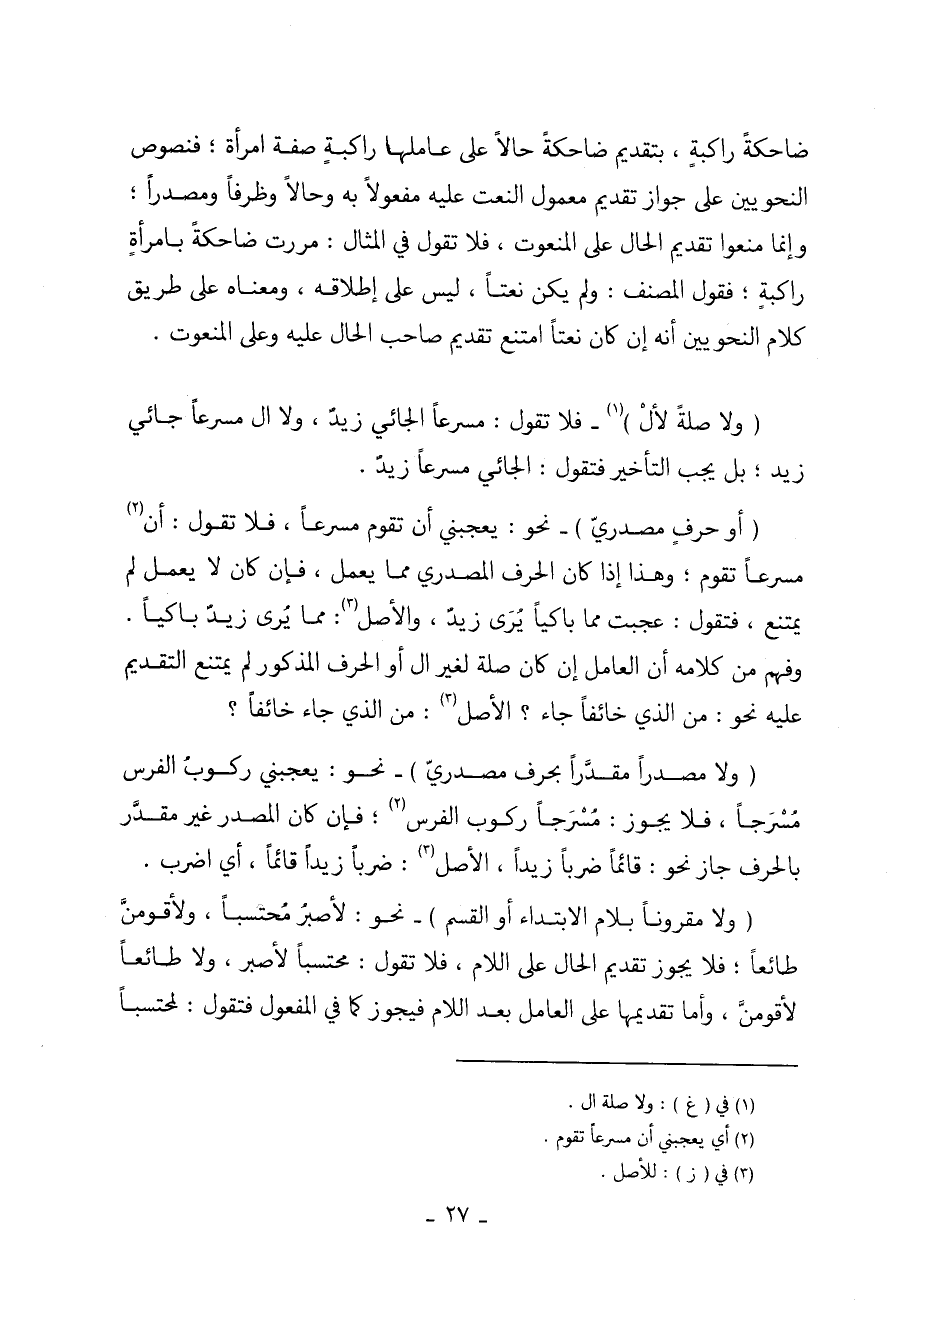 ضاحكةً راكبةٍ ، بتقديم ضاحكةً حالاً على عاملها راكبةٍ صفة امرأة ؛ فنصوص
النحويين على جواز تقديم معمول النعت عليه مفعولاً به وحالاً وظرفاً ومصدراً ؛
وإنما منعوا تقديم الحال على المنعوت ، فلا تقول في المثال : مررت ضاحكةً بامرأةٍ
راكبةٍ ؛ فقول المصنف : ولم يكن نعتاً ، ليس على إطلاقه ، ومعناه على طريق
كلام النحويين أنه إن كان نعتاً امتنع تقديم صاحب الحال عليه وعلى المنعوت .
( ولا صلةً لألْ )(١) ـ فلا تقول : مسرعاً الجائي زيدٌ ، ولا ال مسرعاً جائي
زيد ؛ بل يجب التأخير فتقول : الجائي مسرعاً زيدٌ .
( أو حرفٍ مصدريّ ) ـ نحو : يعجبني أن تقوم مسرعاً ، فلا تقول : أن(٢)
مسرعاً تقوم ؛ وهذا إذا كان الحرف المصدري مما يعمل ، فإن كان لا يعمل لم
يمتنع ، فتقول : عجبت مما باكياً يُرَى زيدٌ ، والأصل(٣): مما يُرى زيدٌ باكياً .
وفهم من كلامه أن العامل إن كان صلة لغير ال أو الحرف المذكور لم يمتنع التقديم
عليه نحو : من الذي خائفاً جاء ؟ الأصل(٣) : من الذي جاء خائفاً ؟
( ولا مصدراً مقدَّراً بحرف مصدريّ ) ـ نحو : يعجبني ركوبُ الفرس
مُسْرَجاً ، فلا يجوز : مُسْرَجاً ركوب الفرس(٢) ؛ فإن كان المصدر غير مقدَّر
بالحرف جاز نحو : قائماً ضرباً زيداً ، الأصل(٣) : ضرباً زيداً قائماً ، أي اضرب .
( ولا مقروناً بلام الابتداء أو القسم ) ـ نحو : لأصبرُ مُحتسباً ، ولأقومنَّ
طائعاً ؛ فلا يجوز تقديم الحال على اللام ، فلا تقول : محتسباً لأصبر ، ولا طائعاً
لأقومنَّ ، وأما تقديمها على العامل بعد اللام فيجوز كما في المفعول فتقول : لمحتسباً
(١) في ( غ ) : ولا صلة ال .
(٢) أي يعجبني أن مسرعاً تقوم .
(٣) في ( ز ) : للأصل .
ـ ٢٧ ـ